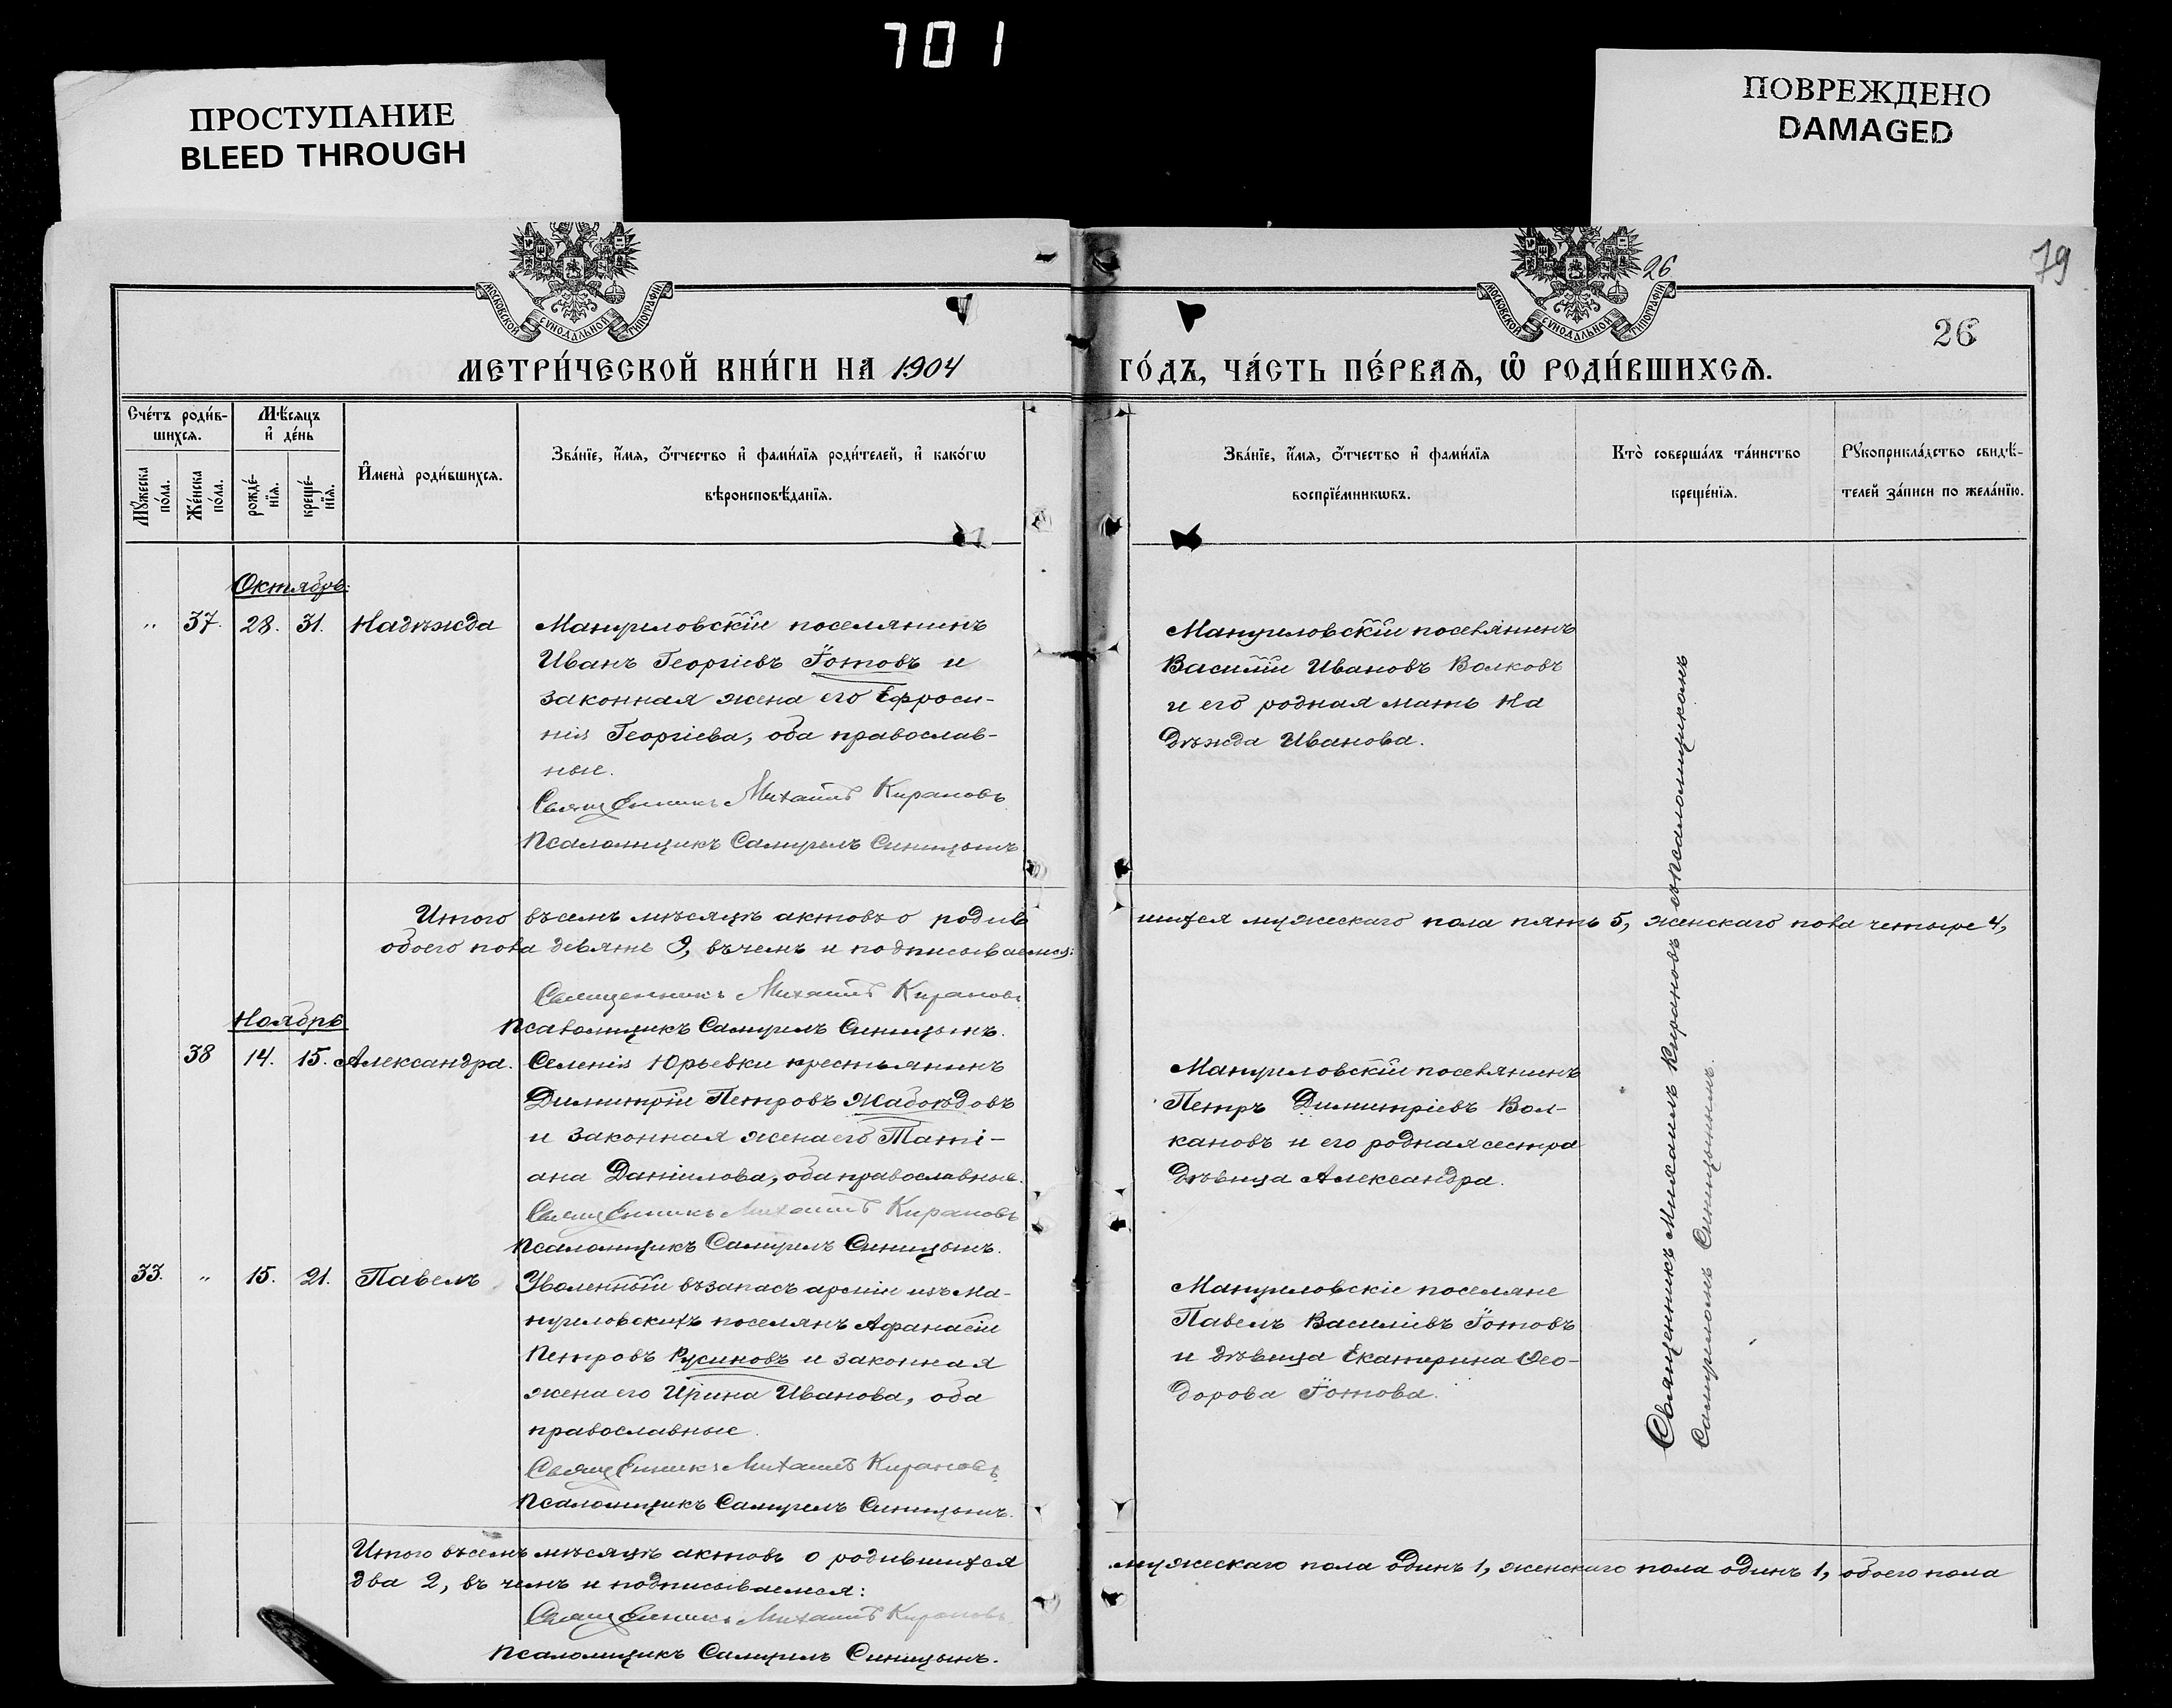 701
ПРОСТУПАНИЕ
BLEED THROUGH
ПОВРЕЖДЕНО
DAMAGED
МОСКОВСКОЙ СѴНОДАЛЬНОЙ ТИПОГРАФІИ
МОСКОВСКОЙ СѴНОДАЛЬНОЙ ТИПОГРАФІИ
26
79
26
МЕТРИ́ЧЕСКОЙ КНИ́ГИ НА 1904
ГО́ДЪ, ЧА́СТЬ ПЕ́РВАѦ, Ѡ҆ РОДИ́ВШИХСѦ.
Сче́тъ роди́в-
шихсѧ.
Мѣ́сяцъ
и҆ де́нь
Мꙋ́жеска
по́ла.
Же́нска
по́ла.
рожде́-
нїѧ.
креще́-
нїѧ.
И҆мена̀ роди́вшихсѧ.
Зва́нїе, и҆́мѧ, ѻ҆́тчество и҆ фами́лїѧ роди́телей, и҆ како́гѡ
вѣроисповѣ́данїѧ.
Зва́нїе, и҆́мѧ, ѻ҆́тчество и҆ фами́лїѧ
воспрїе́мникѡвъ.
Кто̀ соверша́лъ та́инство
креще́нїѧ.
Рꙋкоприкла́дство свидѣ́-
телей за́писи по жела́нїю.
Октябрь.
„ 37. 28. 31. Надѣжда
Мануиловскій поселянинъ
Иванъ Георгіевъ Готовъ и
законная жена его Ефроси-
нія Георгіева, оба православ-
ные.
Священникъ Михаилъ Кирановъ
Псаломщикъ Самуилъ Синицынъ
Мануиловскій поселянинъ
Василій Ивановъ Волковъ
и его родная мать На
дѣжда Иванова.
Итого въ семъ мѣсяцѣ актовъ о родив
шихся мужескаго пола пять 5, женскаго пола четыре 4,
обоего пола девять 9, въ чемъ и подписываемся:
Священникъ Михаилъ Кирановъ
Псаломщикъ Самуилъ Синицынъ.
Ноябрь
38 14. 15. Александра.
Селенія Юрьевки крестьянинъ
Димитрій Петровъ Жабоѣдовъ
и законная жена его Таті-
ана Даніилова, оба православные.
Священникъ Михаилъ Кирановъ
Псаломщикъ Самуилъ Синицынъ.
Мануиловскій поселянинъ
Петръ Димитріевъ Вол-
кановъ и его родная сестра
дѣвица Александра.
33. „ 15. 21. Павелъ
Уволенный въ запасъ арміи изъ Ма-
нуиловскихъ поселянъ Афанасій
Петровъ Русиновъ и законная
жена его Ирина Иванова, оба
православные.
Священникъ Михаилъ Кирановъ
Псаломщикъ Самуилъ Синицынъ.
Мануиловскіе поселяне
Павелъ Василіевъ Готовъ
и дѣвица Екатерина Ѳео-
дорова Готова.
Священникъ Михаилъ Кирановъ съ псаломщикомъ
Самуиломъ Синицынымъ.
Итого въ семъ мѣсяцѣ актовъ о родившихся
мужескаго пола одинъ 1, женскаго пола одинъ 1, обоего пола
два 2, въ чемъ и подписываемся:
Священникъ Михаилъ Кирановъ
Псаломщикъ Самуилъ Синицынъ.